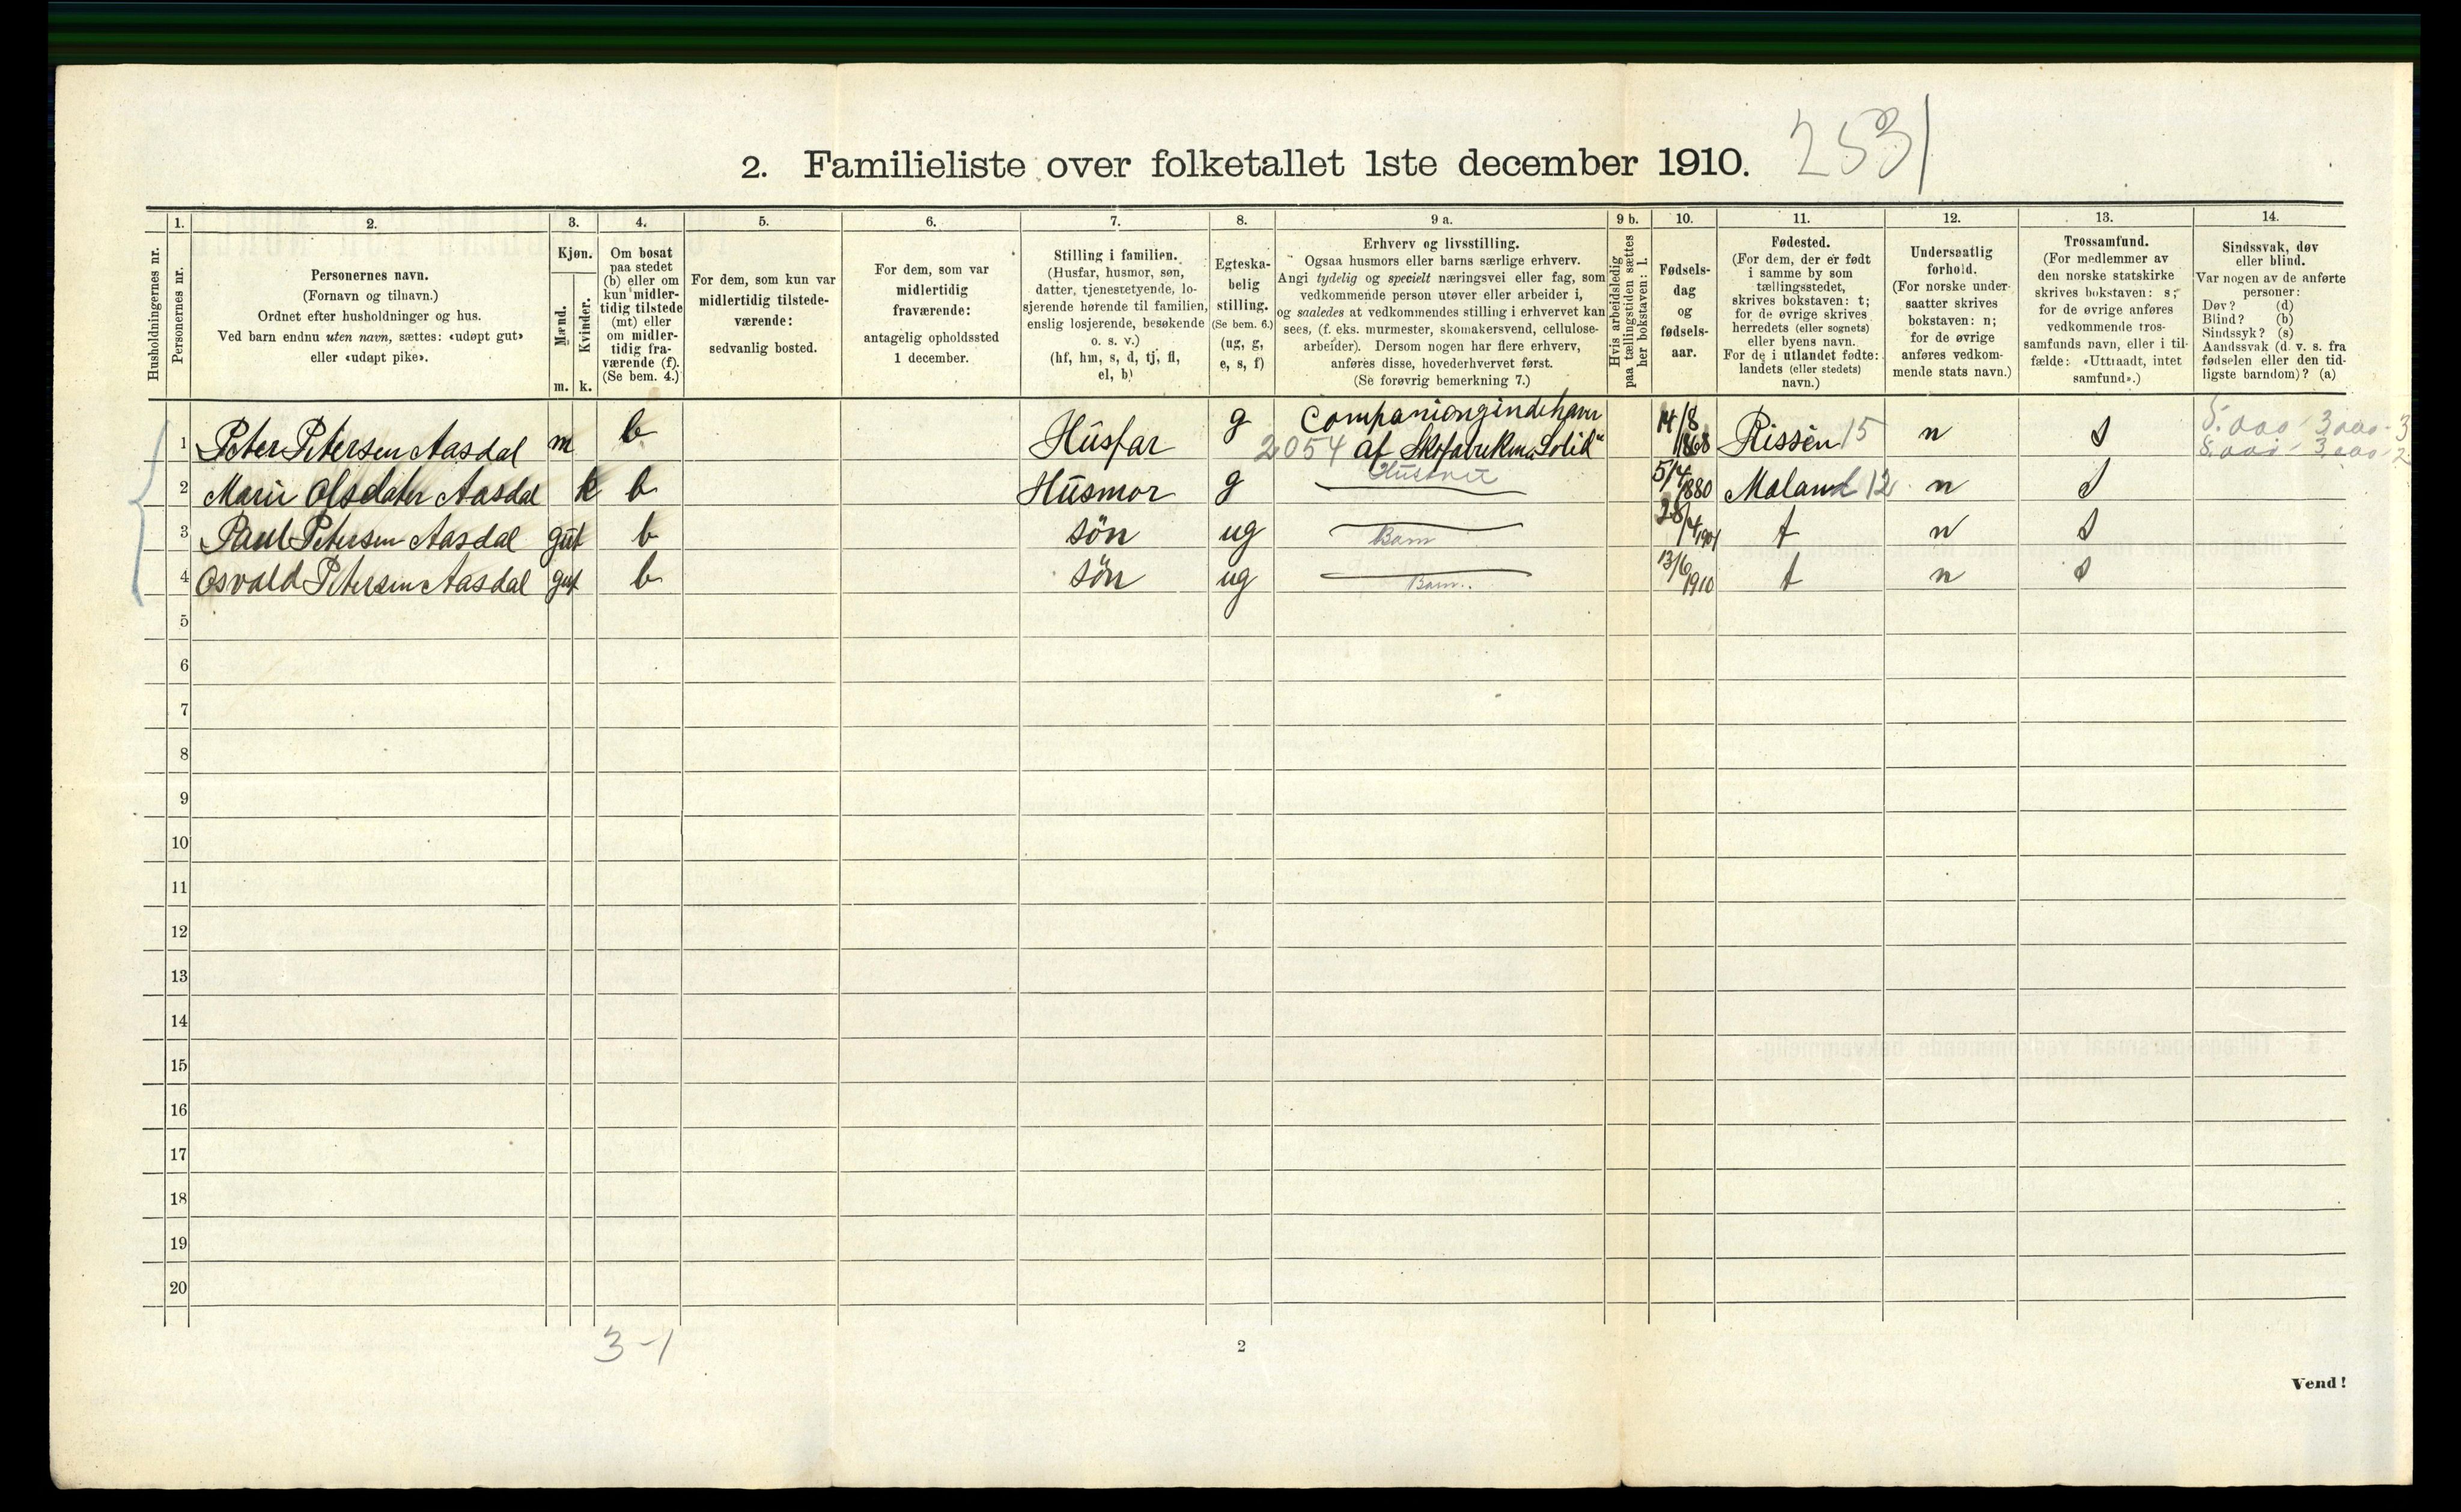 2531
2. Familieliste over folketallet 1ste december 1910.
Husholdningernes nr.
1.
Personernes nr.
2.
Personernes navn.
(Fornavn og tilnavn.)
Ordnet efter husholdninger og hus.
Ved barn endnu uten navn, sættes: «udøpt gut»
eller «udøpt pike».
3.
Kjøn.
Mænd.
Kvinder.
m. k.
4.
Om bosat
paa stedet
(b) eller om
kun midler-
tidig tilstede
(mt) eller
om midler-
tidig fra-
værende (f).
(Se bem. 4.)
5.
For dem, som kun var
midlertidig tilstede-
værende:
sedvanlig bosted.
6.
For dem, som var
midlertidig
fraværende:
antagelig opholdssted
1 december.
7.
Stilling i familien.
(Husfar, husmor, søn,
datter, tjenestetyende, lo-
sjerende hørende til familien,
enslig losjerende, besøkende
o. s. v.)
(hf, hm, s, d, tj, fl,
el, b)
8.
Egteska-
belig
stilling.
(Se bem. 6.)
(ug, g,
e, s, f)
9 a.
Erhverv og livsstilling.
Ogsaa husmors eller barns særlige erhverv.
Angi tydelig og specielt næringsvei eller fag, som
vedkommende person utøver eller arbeider i,
og saaledes at vedkommendes stilling i erhvervet kan
sees, (f. eks. murmester, skomakersvend, cellulose-
arbeider). Dersom nogen har flere erhverv,
anføres disse, hovederhvervet først.
(Se forøvrig bemerkning 7.)
9 b.
Hvis arbeidsledig
paa tællingstiden sættes
her bokstaven: l.
10.
Fødsels-
dag
og
fødsels-
aar.
11.
Fødested.
(For dem, der er født
i samme by som
tællingsstedet,
skrives bokstaven: t;
for de øvrige skrives
herredets (eller sognets)
eller byens navn.
For de i utlandet fødte:
landets (eller stedets)
navn.)
12.
Undersaatlig
forhold.
(For norske under-
saatter skrives
bokstaven: n;
for de øvrige
anføres vedkom-
mende stats navn.)
13.
Trossamfund.
(For medlemmer av
den norske statskirke
skrives bokstaven: s;
for de øvrige anføres
vedkommende tros-
samfunds navn, eller i til-
fælde: «Uttraadt, intet
samfund».)
14.
Sindssvak, døv
eller blind.
Var nogen av de anførte
personer:
Døv? (d)
Blind? (b)
Sindssyk? (s)
Aandssvak (d. v. s. fra
fødselen eller den tid-
ligste barndom)? (a)
1 Peter Petersen Aasdal m b Husfar g Companiongindehaver
2054 af Skofabrikken "Solid" 14/8 1868 Rissen 15 n s 5.000 - 3.000 - 3
8.000 - 3.000 - 2
2 Marie Olsdater Aasdal k b Husmor g Hustru 5/4 1880 Moland 12 n s
3 Paul Petersen Aasdal gut b sön ug Barn 28/4 1901 t n s
4 Osvald Petersen Aasdal gut b sön ug Barn. 13/6 1910 t n s
5
6
7
8
9
10
11
12
13
14
15
16
17
18
19
20
3-1
2
Vend!